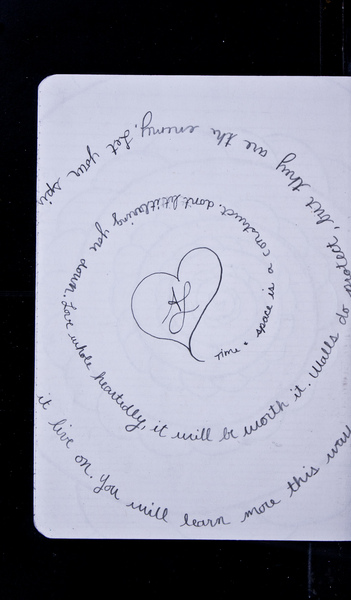 Time + space is a construct. dont let it you down. Love whole heartedly, it will be worth it. Walls do protect, but they are the enemy. Let your spi
it live on. You will learn more this way